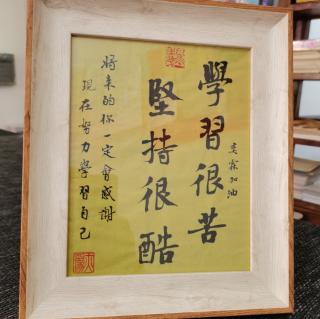 學習很苦
堅持很酷
加油
將来的你一定會感謝
現在努力學習自己